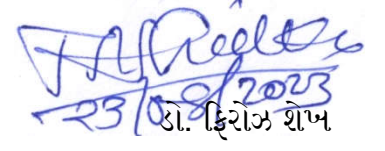 23/08/2023
ડો. ફિરોઝ શેખ